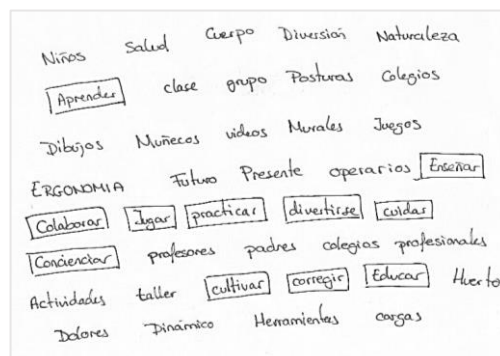 Niños Salud Cuerpo Diversión Naturaleza
Aprender clase grupo Posturas Colegios
Dibujos Muñecos videos Murales Juegos
ERGONOMIA Futuro Presente operarios Enseñar
Colaborar Jugar practicar divertirse cuidar
Concienciar profesores padres colegios profesionales
Actividades taller cultivar corregir Educar Huerto
Dolores Dinámico Herramientas cargas